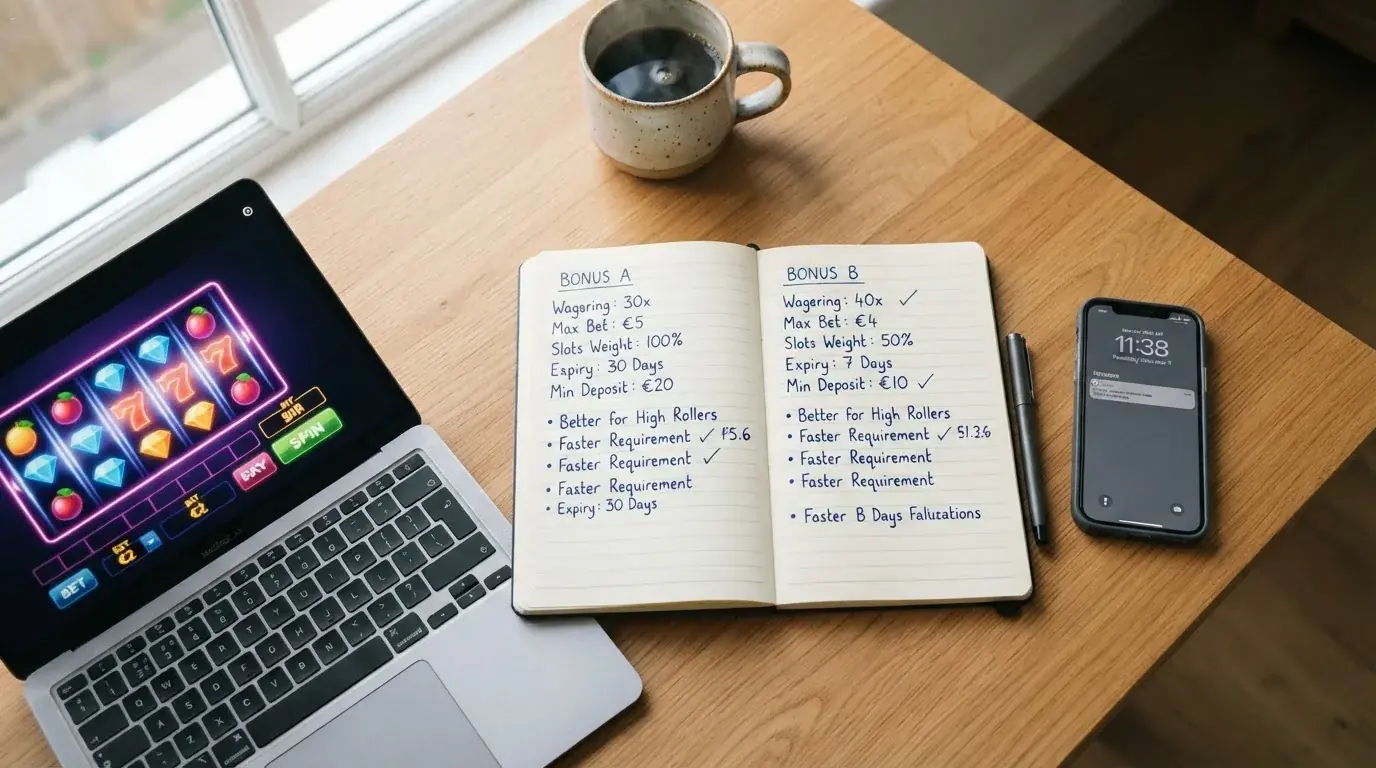 BONUS A
Wagering: 30x
Max Bet: €5
Slots Weight: 100%
Expiry: 30 Days
Min Deposit: €20
• Better for High Rollers
• Faster Requirement ✓
• Faster Requirement ✓
• Faster Requirement
• Expiry: 30 Days
BONUS B
Wagering: 40x ✓
Max Bet: €4
Slots Weight: 50%
Expiry: 7 Days
Min Deposit: €10 ✓
• Better for High Rollers
• Faster Requirement ✓ 51.3.6
• Faster Requirement
• Faster Requirement
• Faster B Days Falizations
7
7
7
SPIN
BET
€2
BET
11:38